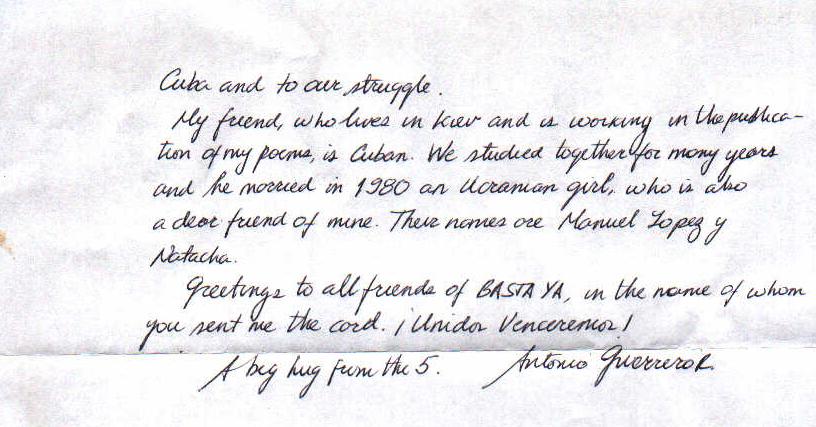 Cuba and to our struggle.
My friend, who lives in Kiev and is working in the publica-
tion of my poems, is Cuban. We studied together for many years
and he married in 1980 an Ucranian girl, who is also
a dear friend of mine. Their names are Manuel Lopez y
Natacha.
Greetings to all friends of BASTA YA, in the name of whom
you sent me the card. ¡Unidos Venceremos!
A big hug from the 5. Antonio Guerrero R.